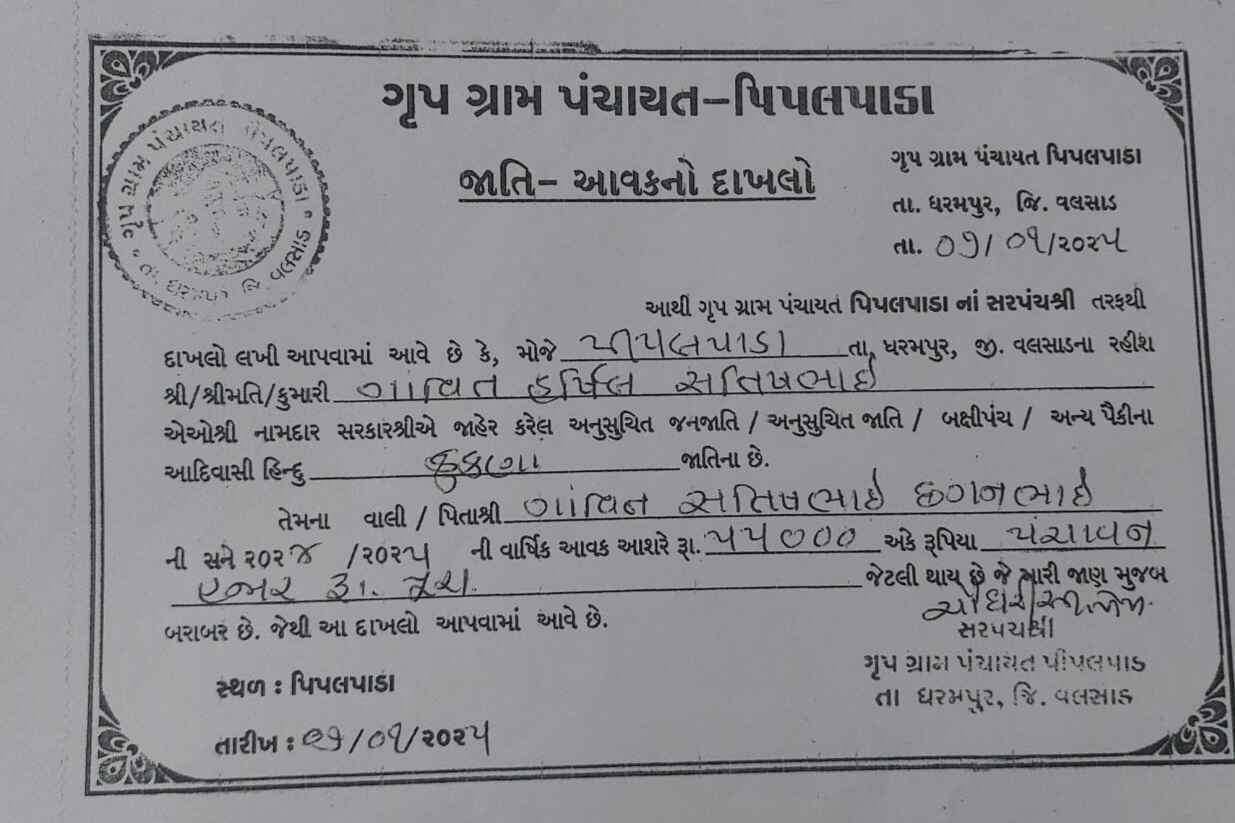 ગૃપ ગ્રામ પંચાયત-પિપલપાડા
જાતિ- આવકનો દાખલો
ગૃપ ગ્રામ પંચાયત પિપલપાડા
તા. ધરમપુર, જિ. વલસાડ
તા. ૦૭/ ૦૧/૨૦૨૫
ગૃપ ગ્રામ પંચાયત પીપલપાડા
તા. ધરમપુર જિ. વલસાડ
આથી ગૃપ ગ્રામ પંચાયત પિપલપાડા નાં સરપંચશ્રી તરફથી
દાખલો લખી આપવામાં આવે છે કે, મોજે પીપલપાડા તા. ધરમપુર, જી. વલસાડના રહીશ
શ્રી/શ્રીમતિ/કુમારી ગાંવિત હર્ષિલ સતિષભાઇ
એઓશ્રી નામદાર સરકારશ્રીએ જાહેર કરેલ અનુસુચિત જનજાતિ / અનુસુચિત જાતિ / બક્ષીપંચ / અન્ય પૈકીના
આદિવાસી હિન્દુ કુકણા જાતિના છે.
તેમના વાલી / પિતાશ્રી ગાંવિત સતિષભાઇ છગનભાઇ
ની સને ૨૦૨૪ /૨૦૨૫ ની વાર્ષિક આવક આશરે રૂા. ૫૫૦૦૦ અંકે રૂપિયા પંચાવન
હજાર રૂા. પૂરા. જેટલી થાય છે જે મારી જાણ મુજબ
બરાબર છે. જેથી આ દાખલો આપવામાં આવે છે.
સરપંચશ્રી
ગૃપ ગ્રામ પંચાયત પીપલપાડ
તા ધરમપુર, જિ. વલસાડ
સ્થળ : પિપલપાડા
તારીખ : ૦૭/૦૧/૨૦૨૫